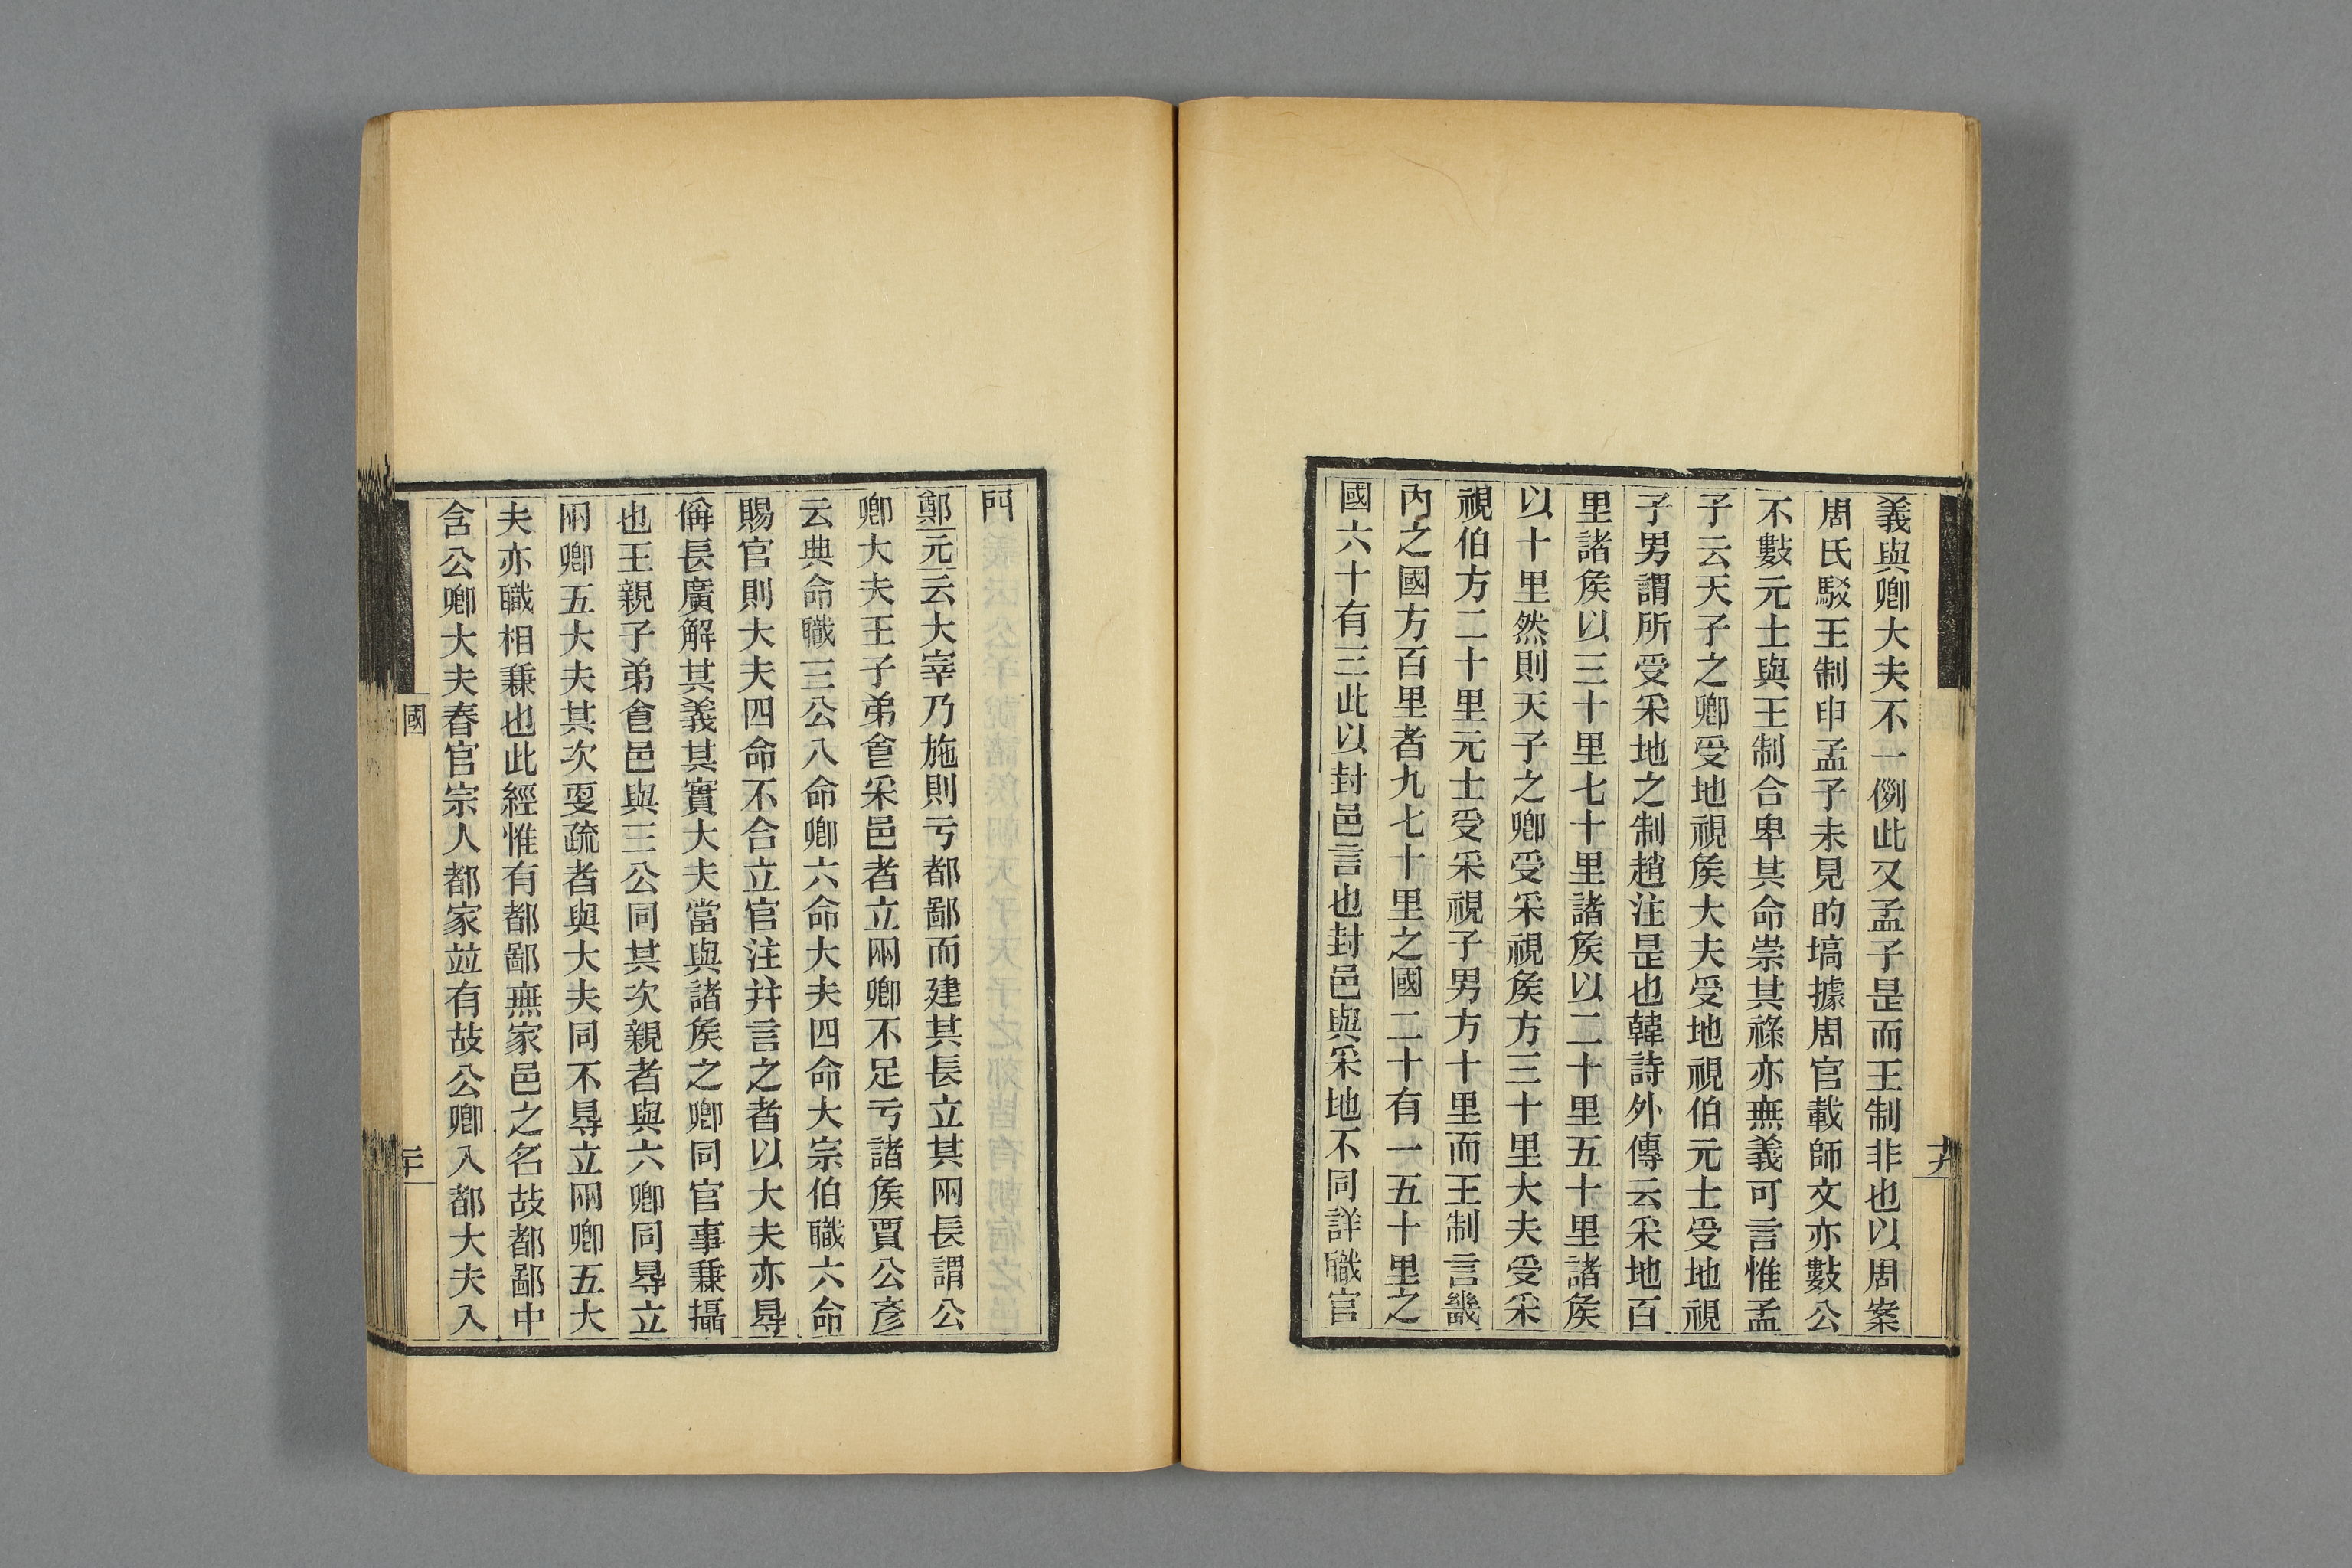 義與卿大夫不一例此又孟子是而王制非也以周案
周氏駁王制申孟子未見的塙據周官載師文亦數公
不數元士與王制合卑其命崇其祿亦無義可言惟孟
子云天子之卿受地視矦大夫受地視伯元士受地視
子男謂所受采地之制趙注是也韓詩外傳云采地百
里諸矦以三十里七十里諸矦以二十里五十里諸矦
以十里然則天子之卿受采視矦方三十里大夫受采
視伯方二十里元士受采視子男方十里而王制言畿
內之國方百里者九七十里之國二十有一五十里之
國六十有三此以封邑言也封邑與采地不同詳職官
十九
門
鄭元云大宰乃施則亏都鄙而建其長立其兩長謂公
卿大夫王子弟食采邑者立兩卿不足亏諸矦賈公彥
云典命職三公八命卿六命大夫四命大宗伯職六命
賜官則大夫四命不合立官注幷言之者以大夫亦㝵
偁長廣解其義其實大夫當與諸矦之卿同官事兼攝
也王親子弟食邑與三公同其次親者與六卿同㝵立
兩卿五大夫其次更疏者與大夫同不㝵立兩卿五大
夫亦職相兼也此經惟有都鄙無家邑之名故都鄙中
含公卿大夫春官宗人都家竝有故公卿入都大夫入
國
二十